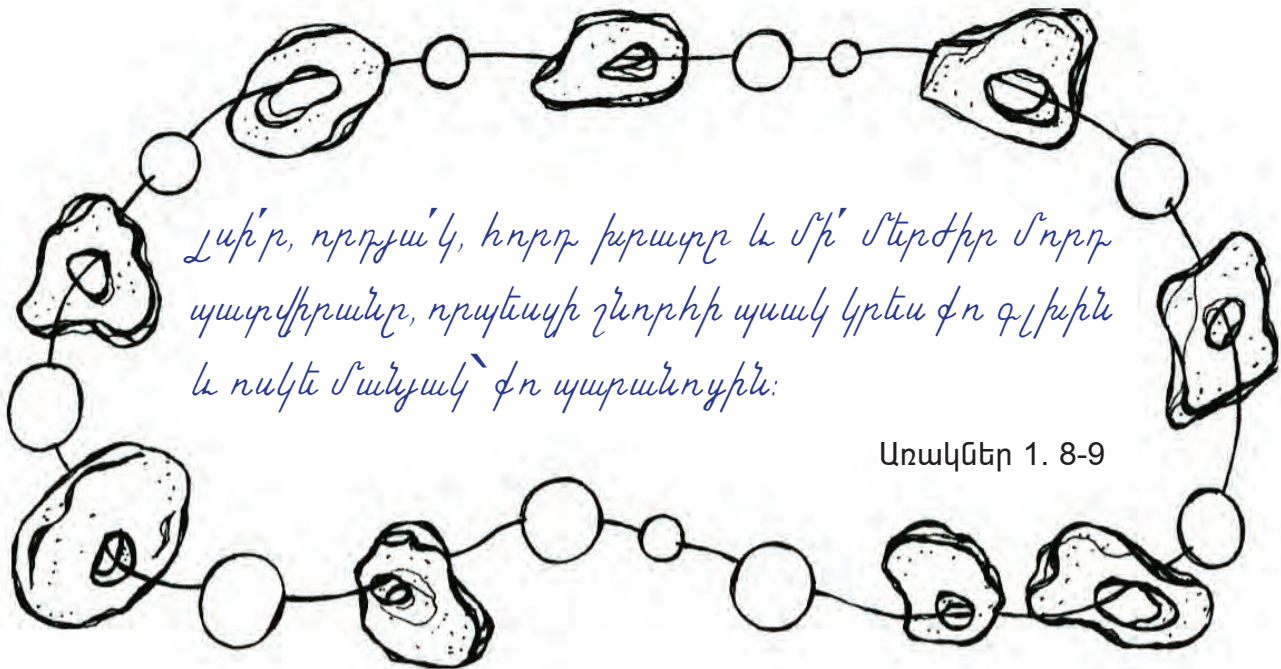 Լսի՛ր, որդյա՛կ, հորդ խրատը և մի՛ մերժիր մորդ
պատվիրանը, որպեսզի շնորհի պսակ կրես քո գլխին
և ոսկե մանյակ՝ քո պարանոցին:
Առակներ 1. 8-9